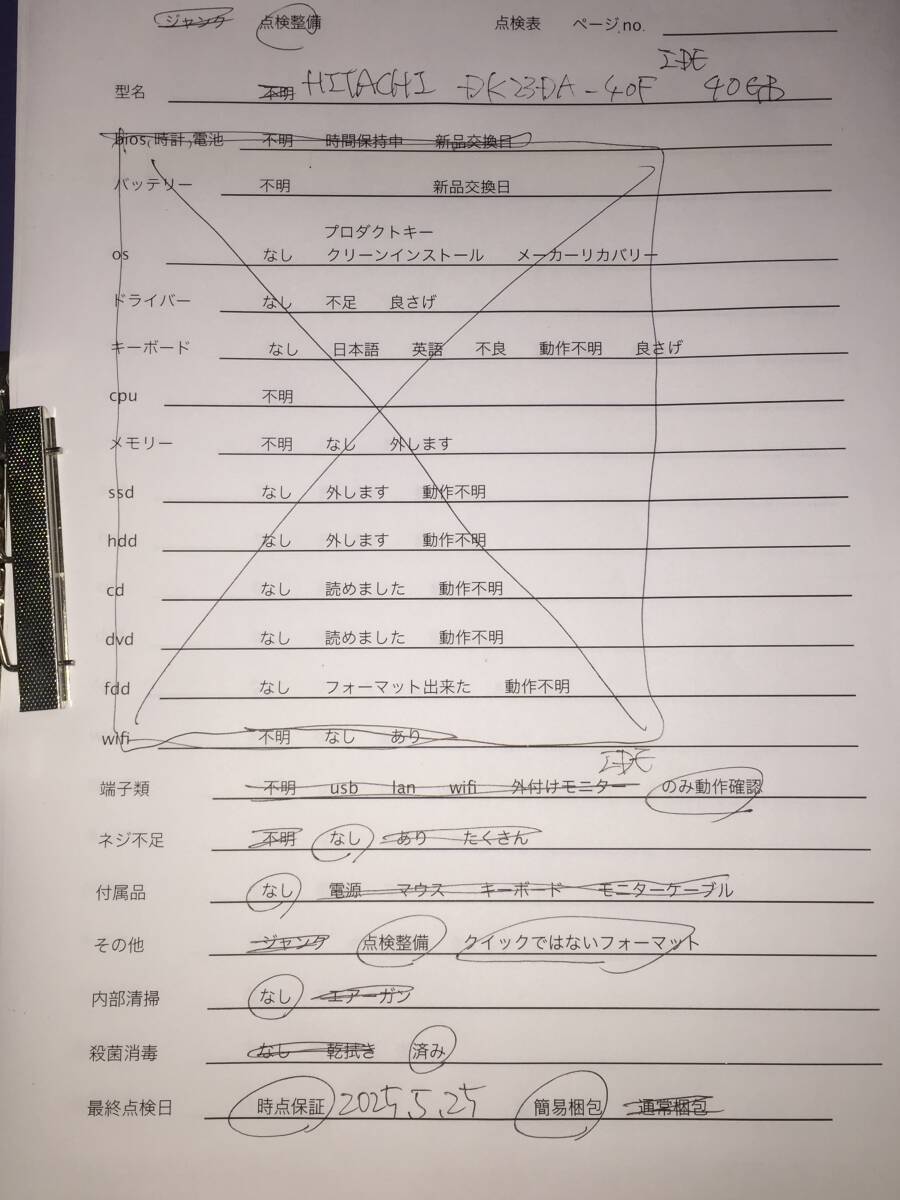 ジャンク 点検整備 点検表 ページ.no.
型名 不明 HITACHI DK23DA-40F IDE 40GB
bios,時計,電池 不明 時間保持中 新品交換日
バッテリー 不明 新品交換日
プロダクトキー
os なし クリーンインストール メーカーリカバリー
ドライバー なし 不足 良さげ
キーボード なし 日本語 英語 不良 動作不明 良さげ
cpu 不明
メモリー 不明 なし 外します
ssd なし 外します 動作不明
hdd なし 外します 動作不明
cd なし 読めました 動作不明
dvd なし 読めました 動作不明
fdd なし フォーマット出来た 動作不明
wifi 不明 なし あり
端子類 不明 usb lan wifi 外付けモニター IDE のみ動作確認
ネジ不足 不明 なし あり たくさん
付属品 なし 電源 マウス キーボード モニターケーブル
その他 ジャンク 点検整備 クイックではないフォーマット
内部清掃 なし エアーガン
殺菌消毒 なし 乾拭き 済み
最終点検日 時点保証 2025.5.25 簡易梱包 通常梱包